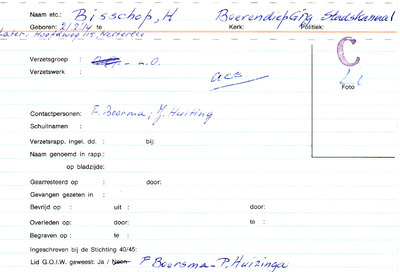 Naam etc.: Bisschop, H Boerendiep Stadskanaal
Geboren: 21.2.14 te Kerk: Politiek:
Later: Hoofdweg 115, 
C
Verzetsgroep : - n.O.
Verzetswerk :
acs
Foto
Contactpersonen: F. Boerma; J. Huiting
Schuilnamen :
Verzetsrapp. ingel. dd. : bij:
Naam genoemd in rapp.:
op bladzijde:
Gearresteerd op : door:
Gevangen gezeten in :
Bevrijd op : uit : door:
Overleden op : door: te :
Begraven op : te :
Ingeschreven bij de Stichting 40/45:
Lid G.O.I.W. geweest: Ja / Neen F Boersma - P. Huizinga